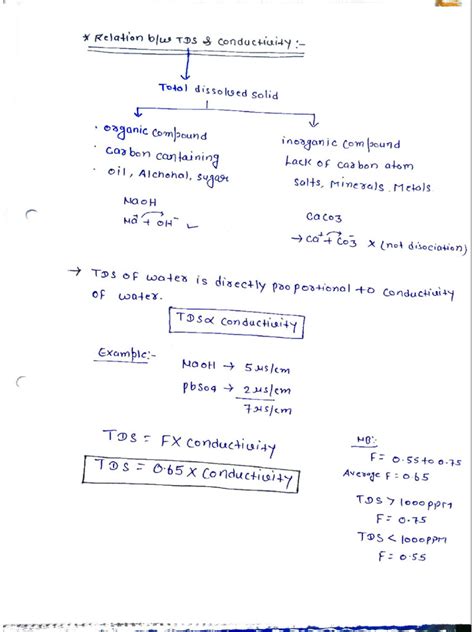 * Relation b/w TDS & conductivity :-
Total dissolved solid
· organic compound
· carbon containing
· oil, Alchohal, sugar
NaOH
Na⁺ + OH⁻ ✓
inorganic compound
Lack of carbon atom
Salts, Minerals, Metals
CaCO3
→ Ca⁺ + CO3⁻ x (not disociation)
→ TDS of water is directly proportional to conductivity
of water.
TDS ∝ conductivity
Example:-
NaOH → 5 µs/cm
PbSO4 → 2 µs/cm
7 µs/cm
TDS = F x conductivity
TDS = 0.65 x Conductivity
NB:
F = 0.55 to 0.75
Average F = 0.65
TDS > 1000 ppm
F = 0.75
TDS < 1000 ppm
F = 0.55